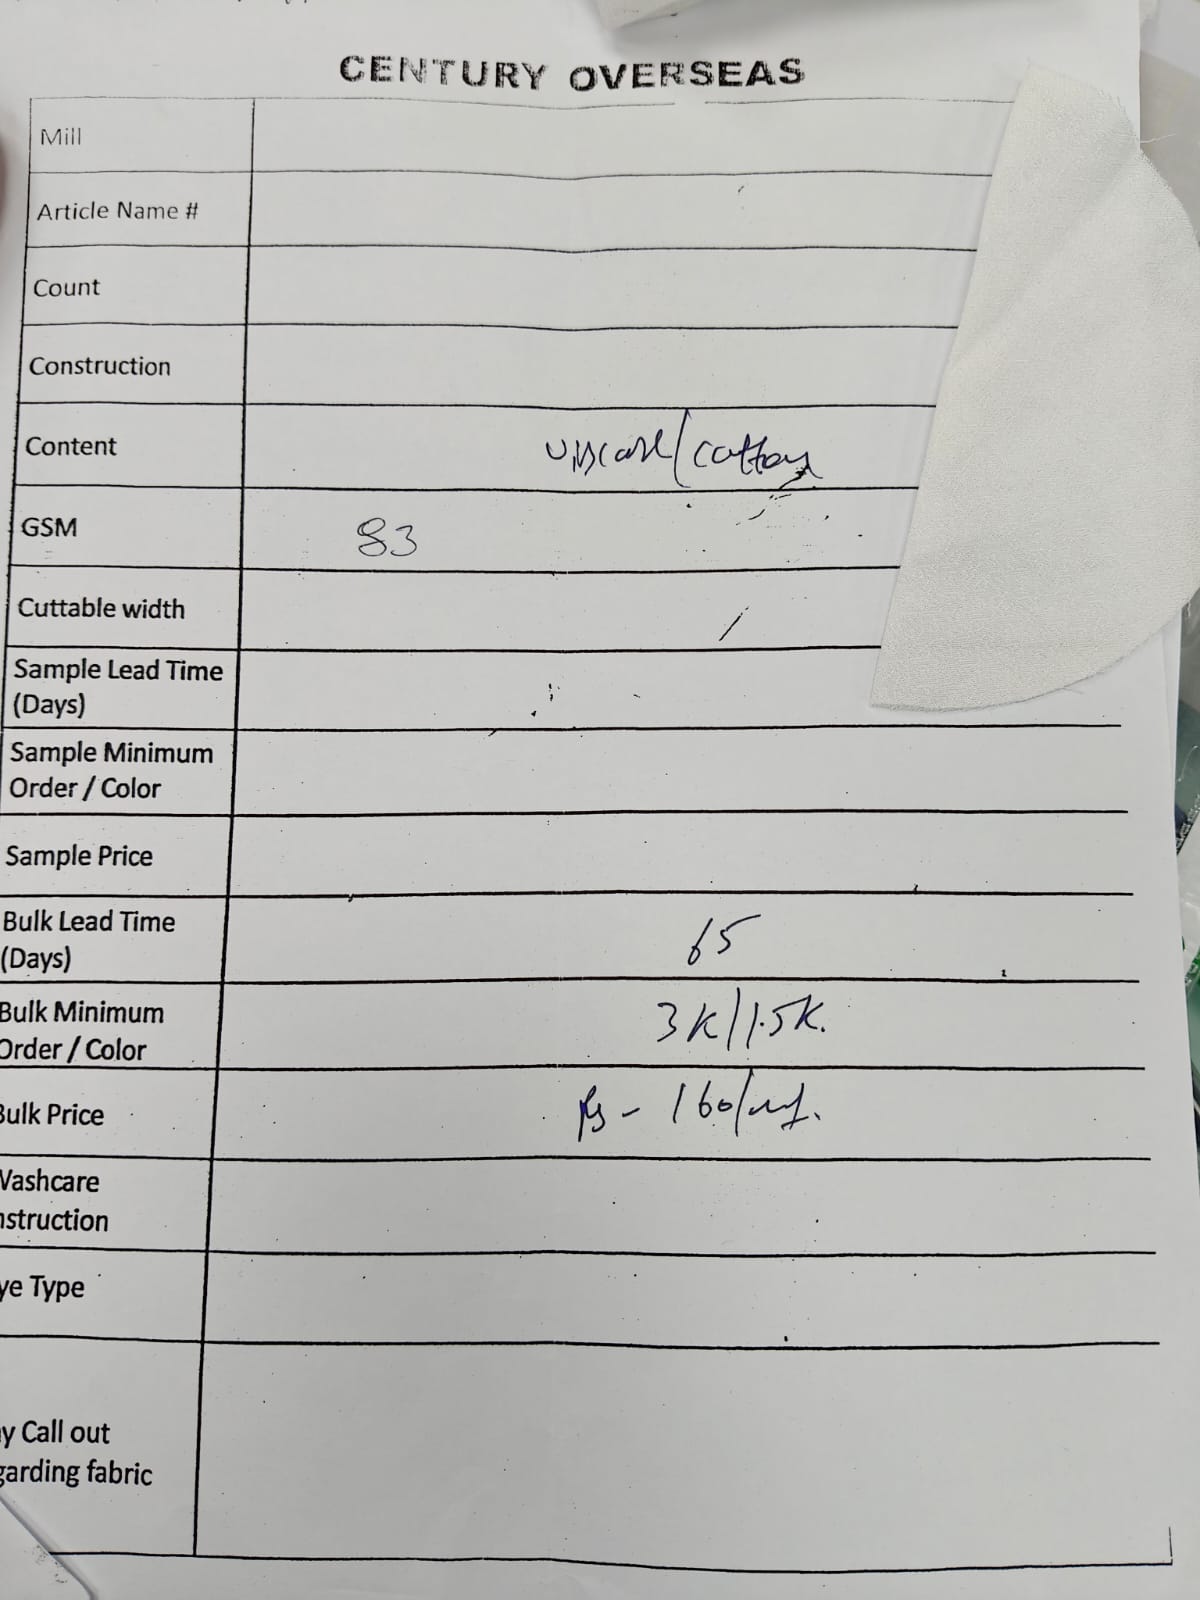 CENTURY OVERSEAS
Mill
Article Name #
Count
Construction
Content viscose/cotton
GSM 83
Cuttable width
Sample Lead Time
(Days)
Sample Minimum
Order / Color
Sample Price
Bulk Lead Time
(Days) 65
Bulk Minimum
Order / Color 3K/1.5K.
Bulk Price Rs - 160/
Washcare
nstruction
ye Type
y Call out
garding fabric